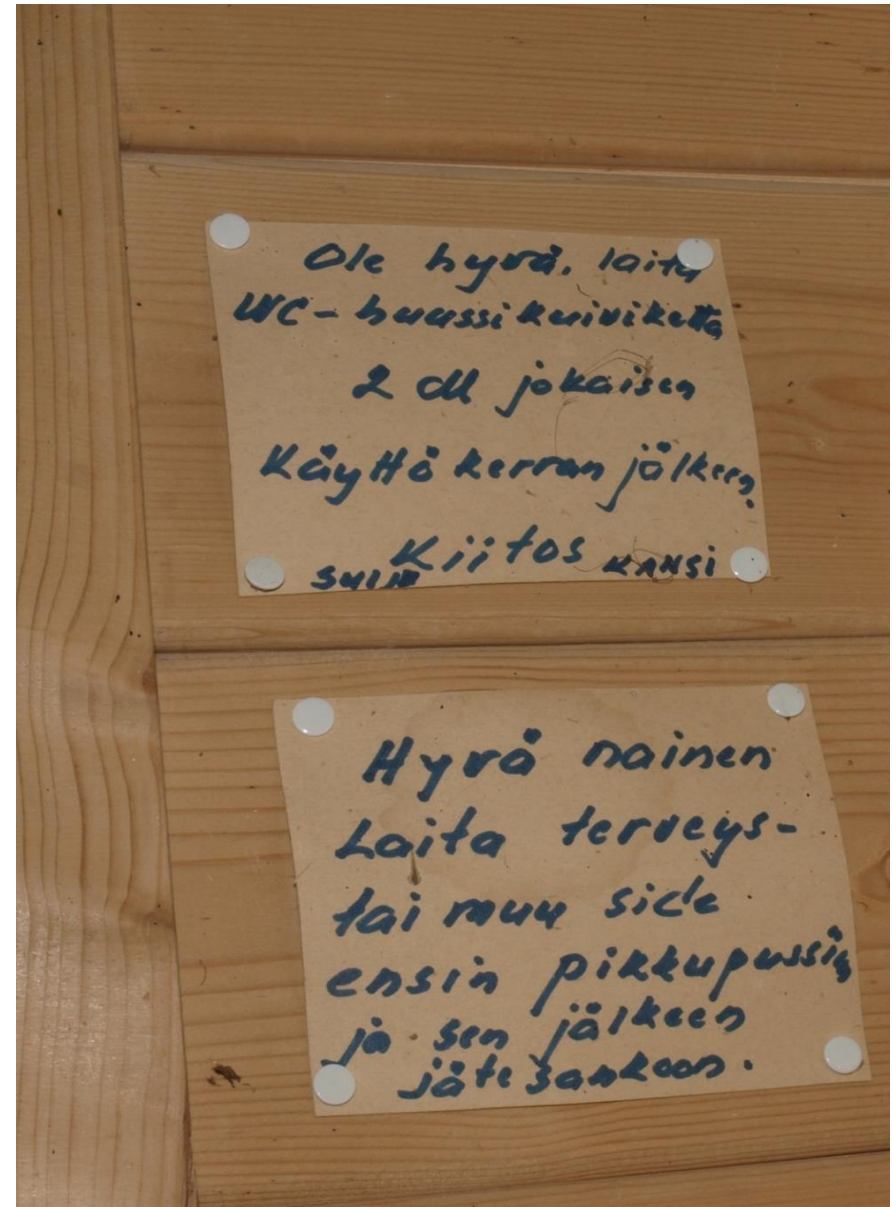 Ole hyvä, laita
WC-huussikuiviketta
2 dl jokaisen
Käyttö kerran jälkeen.
Kiitos
KANSI
Hyvä nainen
Laita terveys-
tai muu side
ensin pikkupussiin
ja sen jälkeen
jäte sankoon.